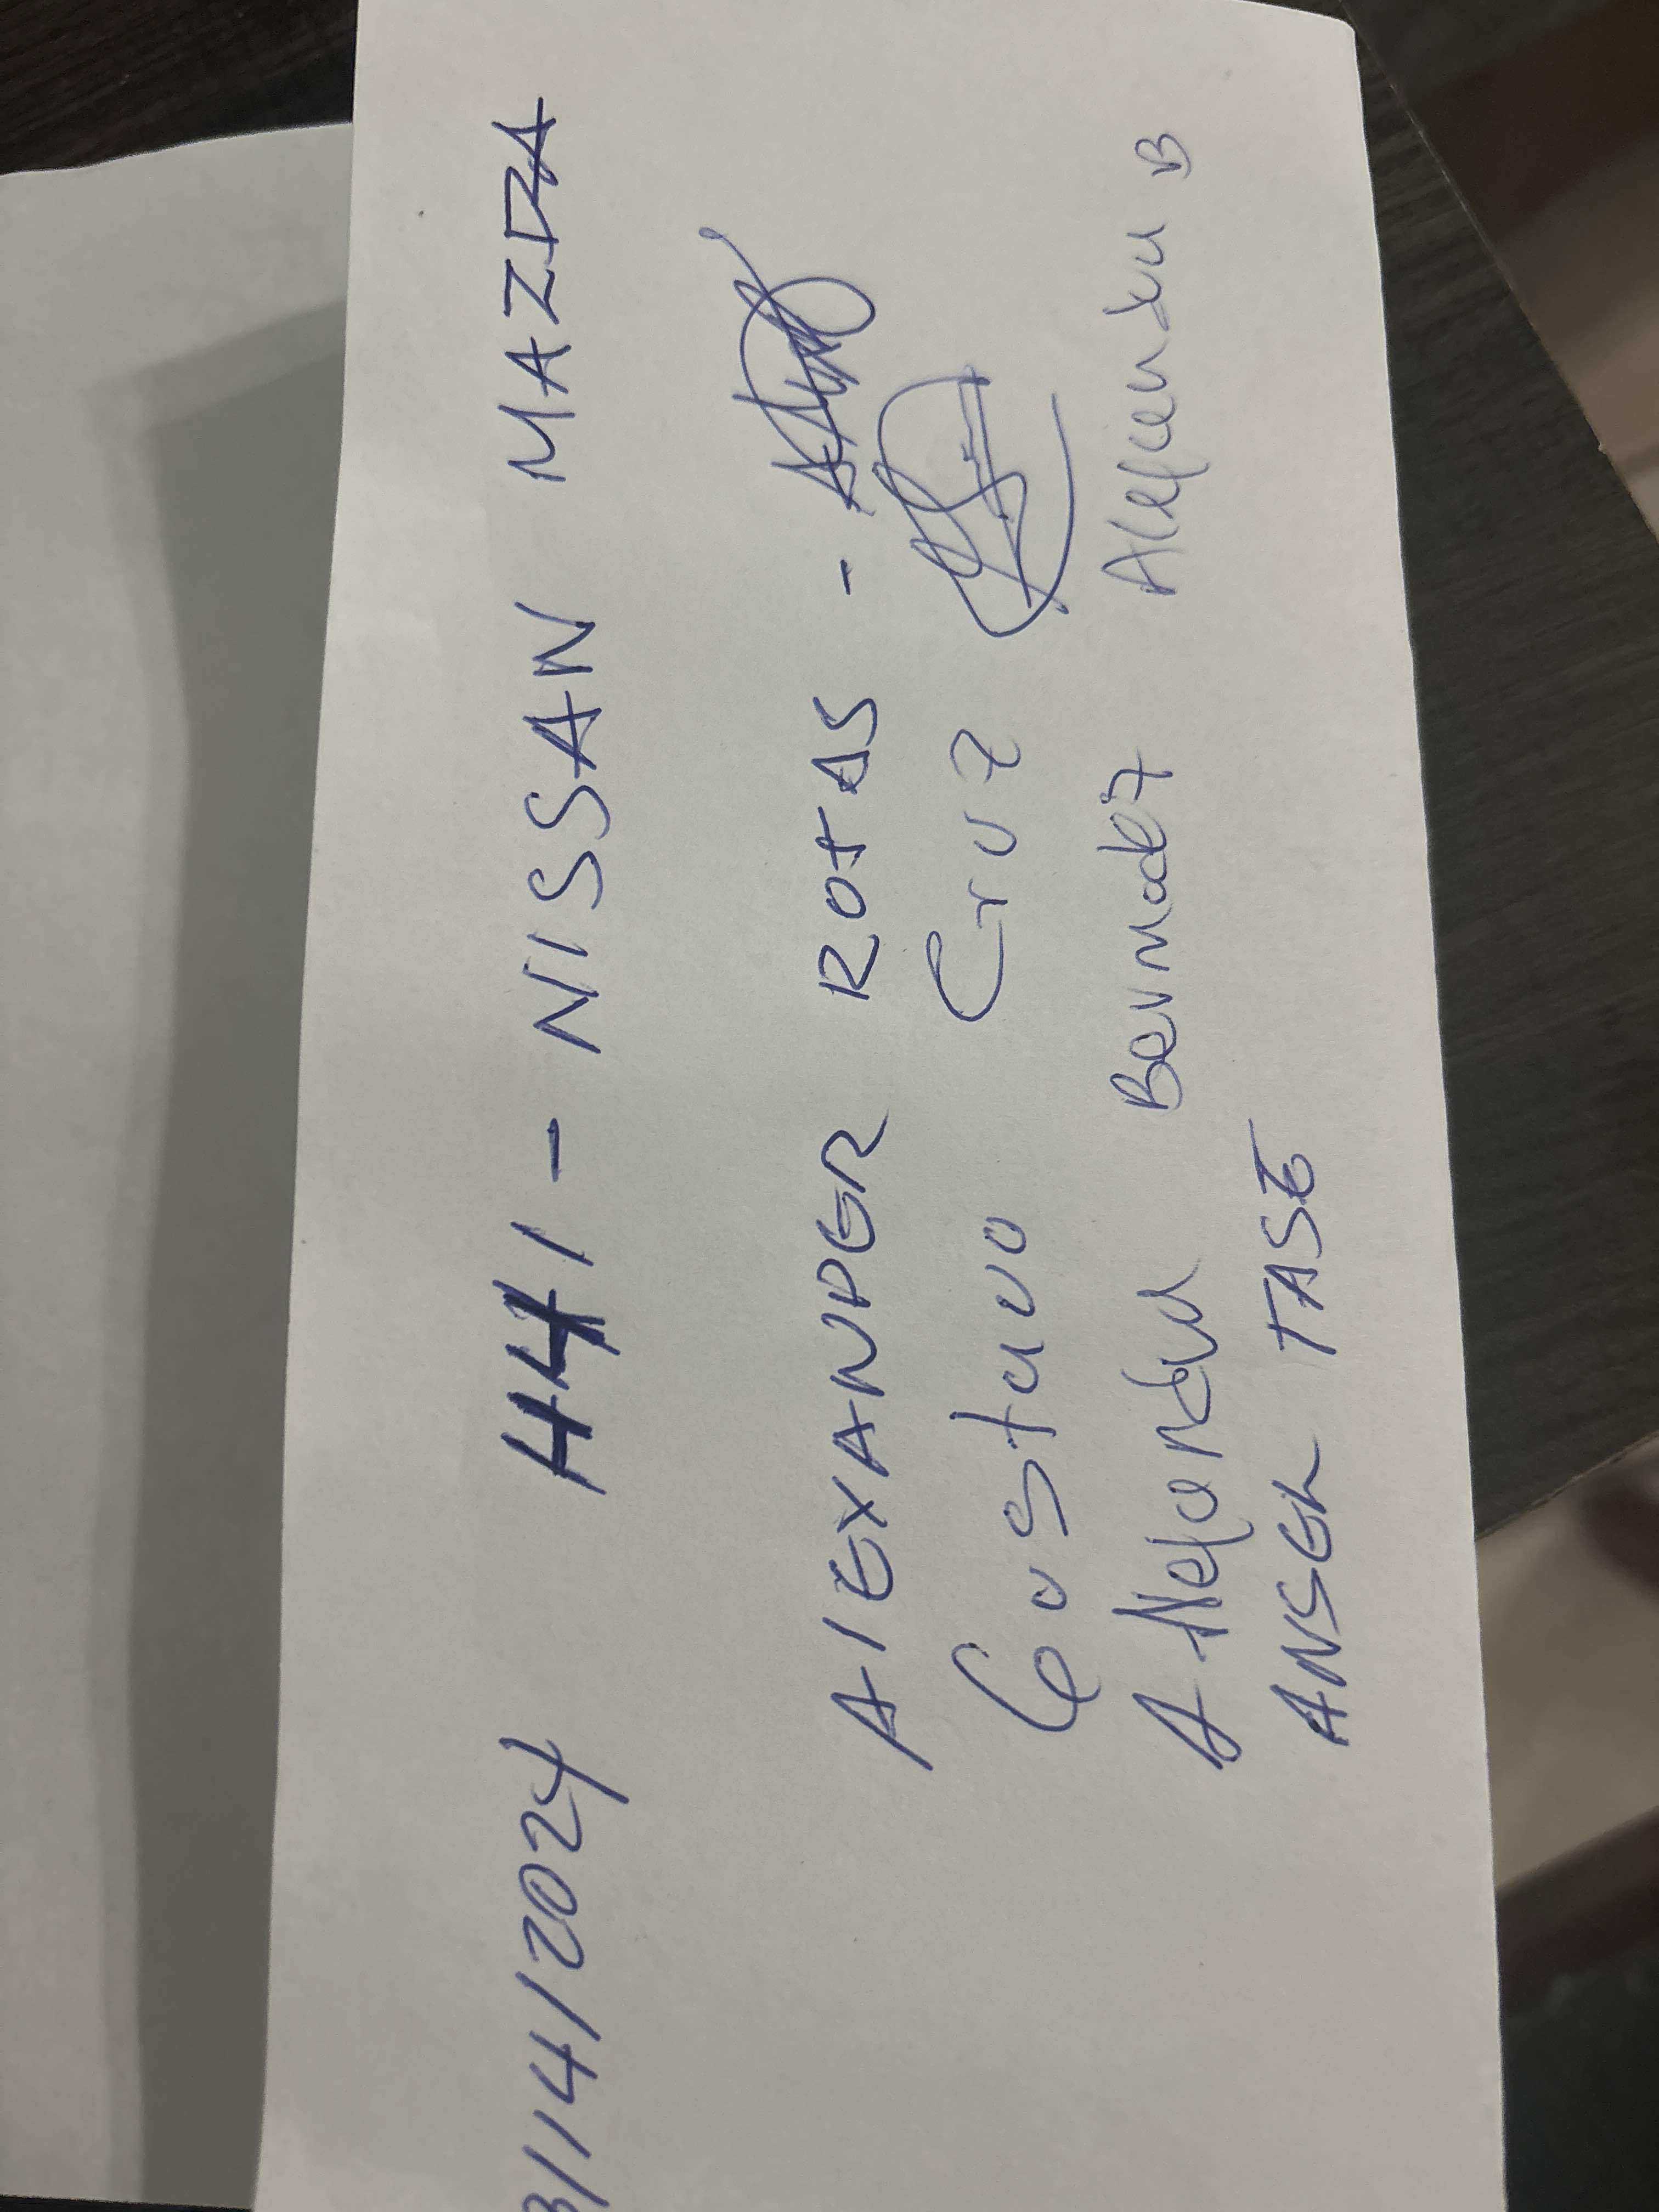 3/14/2024 H41 - NISSAN MAZDA
AlEXANDER ROJAS -
Gustavo Cruz
Alejandra Bermudez Alejandra B
ANGEL TASE